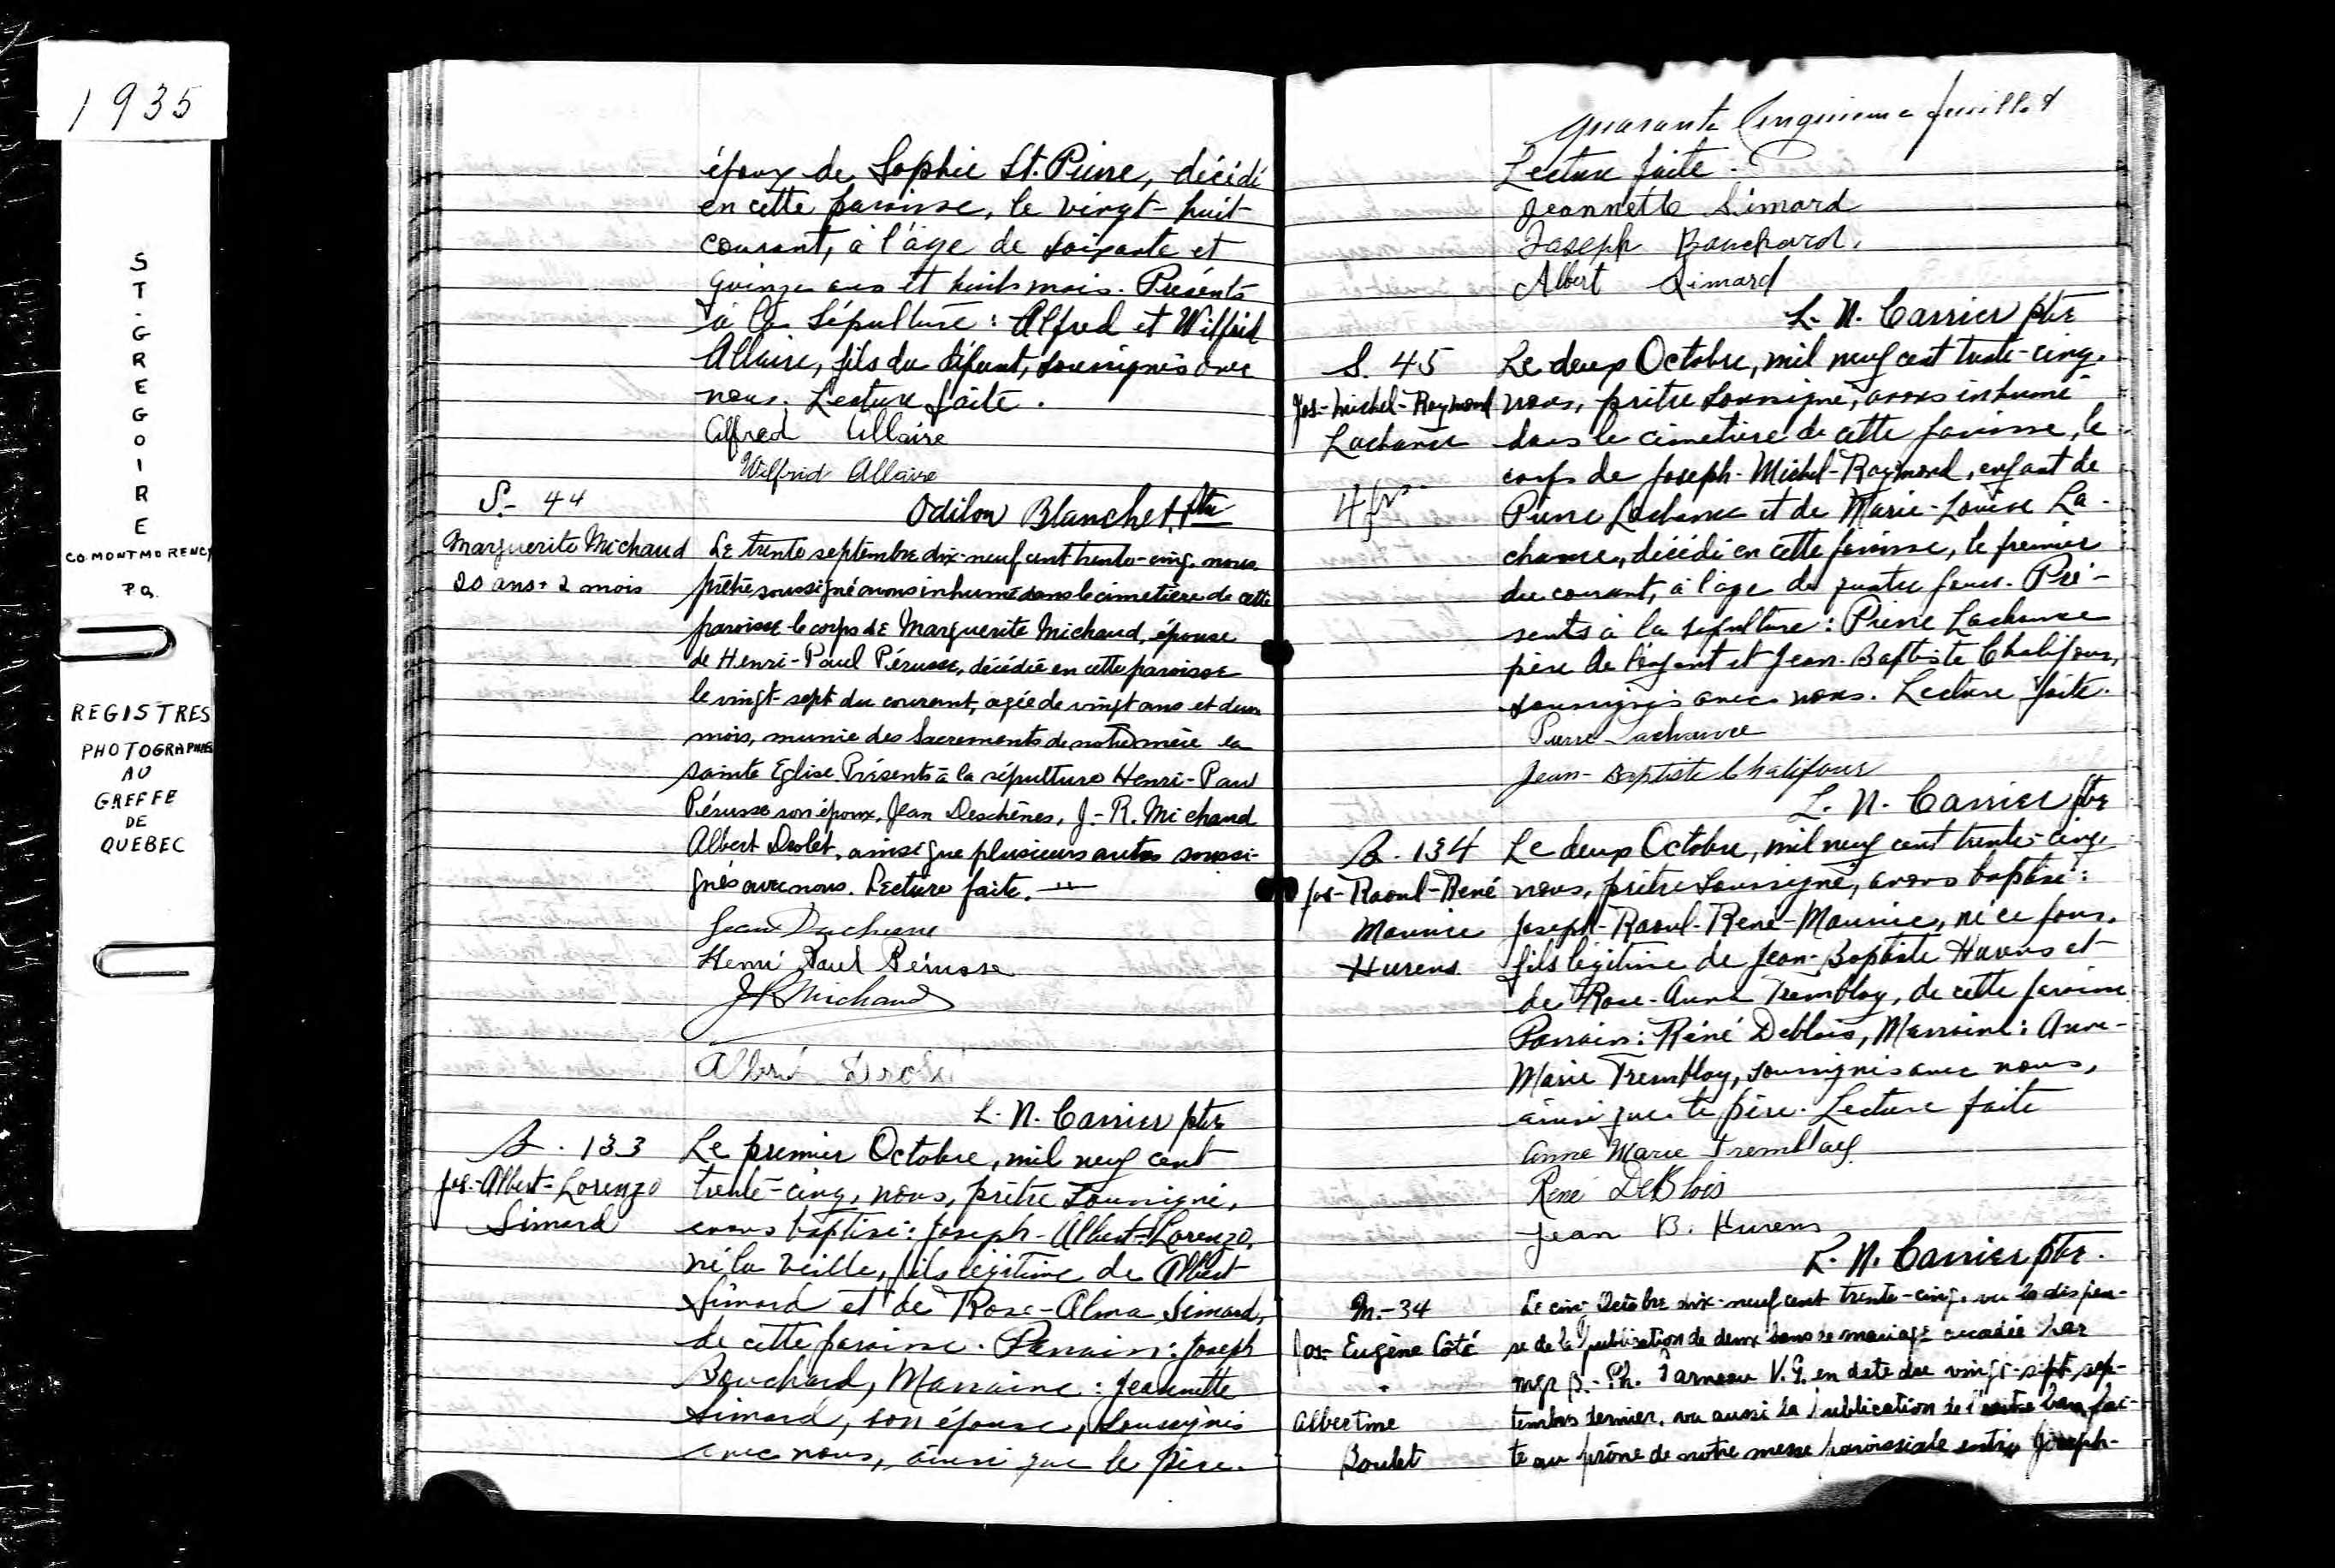 1935
ST. GREGOIRE
CO. MONTMORENCY
P.Q.
REGISTRES
PHOTOGRAPHIÉS
AU
GREFFE
DE
QUEBEC
époux de Sophie St. Pierre, décédé
en cette paroisse, le vingt-huit
courant, à l'âge de soixante et
quinze ans et huit mois. Présents
à la sépulture : Alfred et Wilfrid
Allaire, fils du défunt, soussignés avec
nous. Lecture faite.
Alfred Allaire
Wilfrid Allaire
Odilon Blanchet, ptre
S.- 44
Marguerite Michaud
20 ans + 2 mois
Le trente septembre dix-neuf cent trente-cinq, nous
prêtre soussigné avons inhumé dans le cimetière de cette
paroisse le corps de Marguerite Michaud, épouse
de Henri-Paul Pérusse, décédée en cette paroisse
le vingt-sept du courant, agée de vingt ans et deux
mois, munie des Sacrements de notre mère la
sainte Eglise. Présents à la sépulture Henri-Paul
Pérusse son époux, Jean Deschênes, J.-R. Michaud
Albert Drolet, ainsi que plusieurs autres soussi-
gnés avec nous. Lecture faite. —"—
Jean Duchesne
Henri Paul Pérusse
J R Michaud
Albert Drolet
L. N. Carrier ptre
B. 133
Jos.-Albert-Lorenzo
Simard
Le premier Octobre, mil neuf cent
trente-cinq, nous, prêtre soussigné,
avons baptisé : Joseph-Albert-Lorenzo,
né la veille, fils légitime de Albert
Simard et de Rose-Alma Simard,
de cette paroisse. Parrain : Joseph
Bouchard, Marraine : Jeannette
Simard, son épouse, soussignés
avec nous, ainsi que le père.
quarante cinquieme feuillet
Lecture faite.
Jeannette Simard
Joseph Bouchard.
Albert Simard
L. N. Carrier ptre
S. 45
Jos-Michel-Raymond
Lachance
4 jrs
Le deux Octobre, mil neuf cent trente-cinq,
nous, prêtre soussigné, avons inhumé
dans le cimetière de cette paroisse, le
corps de Joseph-Michel-Raymond, enfant de
Pierre Lachance et de Marie-Louise La-
chance, décédé en cette paroisse, le premier
du courant, à l'age de quatre jours. Pré-
sents à la sépulture : Pierre Lachance
père de l'enfant et Jean-Baptiste Chalifour,
soussignés avec nous. Lecture faite.
Pierre Lachance
Jean-Baptiste Chalifour
L. N. Carrier ptre
B. 134
Jos-Raoul-René
Maurice
Hurens
Le deux Octobre, mil neuf cent trente-cinq,
nous, prêtre soussigné, avons baptisé :
Joseph-Raoul-René-Maurice, né ce jour,
fils légitime de Jean-Baptiste Hurens et
de Rose-Anna Tremblay, de cette paroisse
Parrain : Réné Deblois, Marraine : Anne-
Marie Tremblay, soussignés avec nous,
ainsi que le père. Lecture faite
Anne Marie Tremblay
René DeBlois
Jean B. Hurens
L. N. Carrier ptre.
M.-34
Jos-Eugène Côté
Albertine
Boulet
Le cinq Octobre dix-neuf cent trente-cinq, vu la dispen-
se de la publication de deux bans de mariage accordée par
Mgr B.-Ph. Garneau V.G. en date du vingt-sept sep-
tembre dernier, vu aussi la publication de l'autre ban fai-
te au prône de notre messe paroissiale entre Joseph-